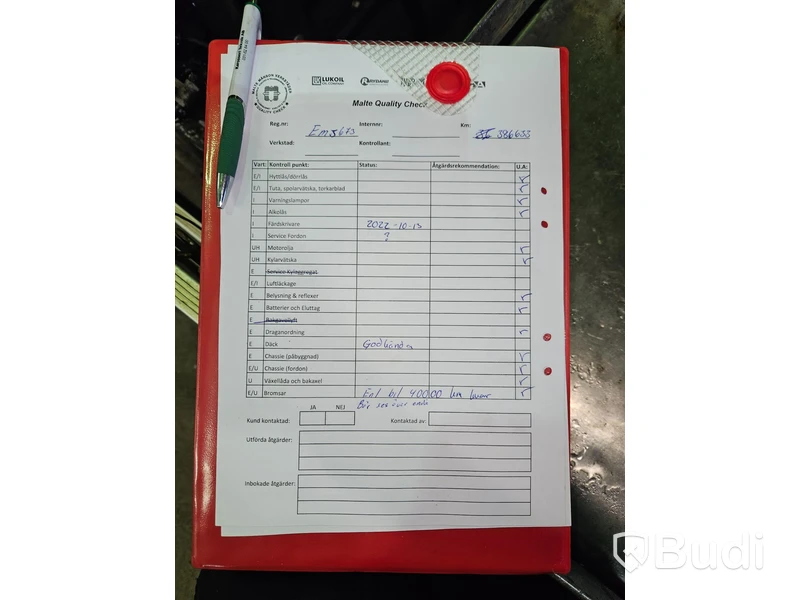 MALTE MÅNSON VERKSTÄDER
QUALITY CHECK
LUKOIL
OIL COMPANY
Malte Quality Chec
Reg.nr: Ems673 Internnr: Km: 386633
Verkstad: Kontrollant:
Vart: Kontroll punkt: Status: Åtgärdsrekommendation: U.A:
E/I Hyttlås/dörrlås
E/I Tuta, spolarvätska, torkarblad
I Varningslampor
I Alkolås
I Färdskrivare 2022-10-13
I Service Fordon ?
UH Motorolja
UH Kylarvätska
E Service Kylaggregat
E/I Luftläckage
E Belysning & reflexer
E Batterier och Eluttag
E Bakgavellyft
E Draganordning
E Däck Godkända
E Chassie (påbyggnad)
E/U Chassie (fordon)
U Växellåda och bakaxel
E/U Bromsar Enl bil 40000 km kvar
Bör ses över ändå
JA NEJ
Kund kontaktad: Kontaktad av:
Utförda åtgärder:
Inbokade åtgärder:
Budi